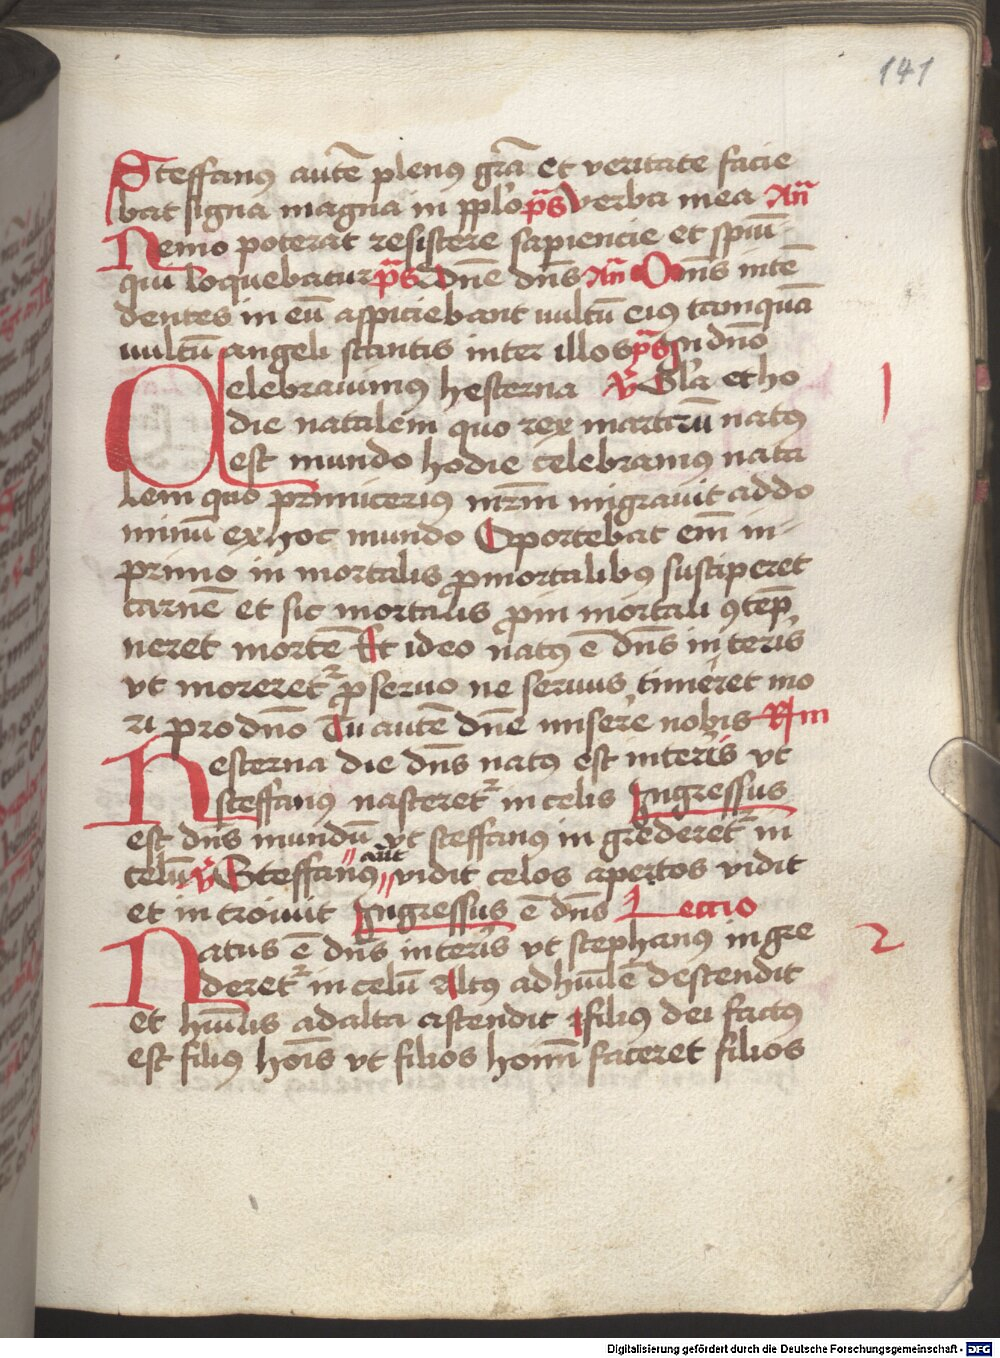 141
Steffanꝰ autē plenꝰ grã et veritate facie
bat signa magna in pplo p̄s Verba mea An̄
Nemo poterat resistere sapiencie et spiui
qui loquebatur p̄s Dn̄e dn̄s An̄ Om̄s inten
dentes in eū aspiciebant uultū eiꝰ tamquã
uultū angeli stantis inter illos p̄s In dn̄o
Celebrauimꝰ hesterna V̄ Gl̄a et ho
die natalem quo rex martirū natꝰ
est mundo hodie celebramꝰ nata
lem quo primiceriꝰ mr̄m migrauit ad do
minū ex hoc mundo Oportebat em̄ in
primo in mortalis ꝓ mortalibꝰ susciperet
carnē et sic mortalis ꝓ in mortali ꝯtep̄
neret mortē Et ideo natꝰ ē dn̄s in teris
vt moreret᷑ ꝓ seruo ne seruus timeret mo
ri pro dn̄o Tu autē dn̄e misere nobis Rm
Hesterna die dn̄s natꝰ est in teris vt
steffanꝰ nasceret᷑ in celis Ingressus
est dn̄s mundū vt steffanꝰ in grederet᷑ in
celū V̄ Steffanꝰ aūt vidit celos apertos vidit
et in troiuit Ingressus ē dn̄s Leccio
Natus ē dn̄s in teris vt stephanꝰ ingre
deret᷑ in celū Altꝰ ad huīlē descendit
et huīlis ad alta ascendit filiꝰ dei factꝰ
est filiꝰ hoīs vt filios homī faceret filios
1
2
Digitalisierung gefördert durch die Deutsche Forschungsgemeinschaft - DFG